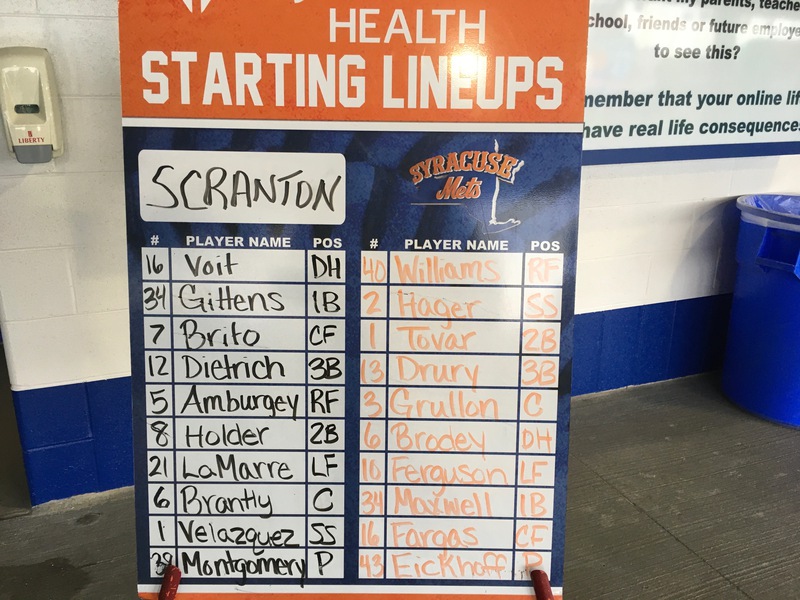 HEALTH
STARTING LINEUPS
SCRANTON
SYRACUSE
Mets
# PLAYER NAME POS
16 Voit DH
34 Gittens 1B
7 Brito CF
12 Dietrich 3B
5 Amburgey RF
8 Holder 2B
21 LaMarre LF
6 Brantly C
1 Velazquez SS
Montgomery P
# PLAYER NAME POS
40 Williams RF
2 Hager SS
1 Tovar 2B
13 Drury 3B
3 Grullon C
6 Brodey DH
10 Ferguson LF
34 Maxwell 1B
16 Fargas CF
43 Eickhoff P
my parents, teache
chool, friends or future employe
to see this?
member that your online lif
have real life consequence
LIBERTY